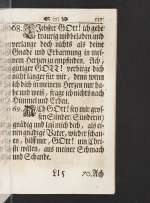 68. Liebster GOtt! ich gehe
traurig und beladen und
verlange doch nichts als deine
Gnade und Erbarmung in mei-
nem Herzen zu empfinden. Ach,
gütiger GOTT! verbirge dich
nicht länger für mir, denn wenn
ich dich in meinem Herzen nur ha-
be und weiß, frage ich nichts nach
Himmel und Erden.
69. Ach GOtt! sey mir gros-
sen Sünder (Sünderin)
gnädig und laß mich doch, als ei-
nen gnädigen Vater, wieder schau-
en, hilff mir, GOtt! um Chri-
sti willen, aus meiner Schmach
und Schande.
Ll 5 70. Ach